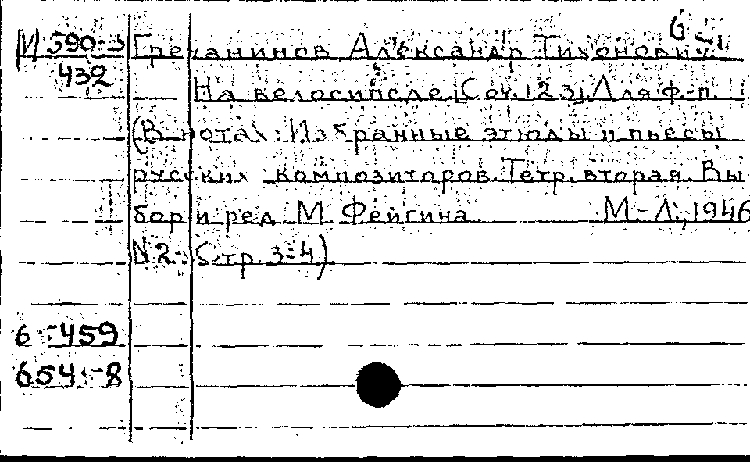 6-1
М 590-3 Гречанинов Александр Тихонович.
432 На велосипеде. [Соч. 123]. Для ф-п.
(В нотах: Избранные этюды и пьесы
русских композиторов. Тетр. вторая. Вы-
бор и ред. М. Фейгина. М-Л., 1946
N2. Стр. 3-4)
6-459
654-8